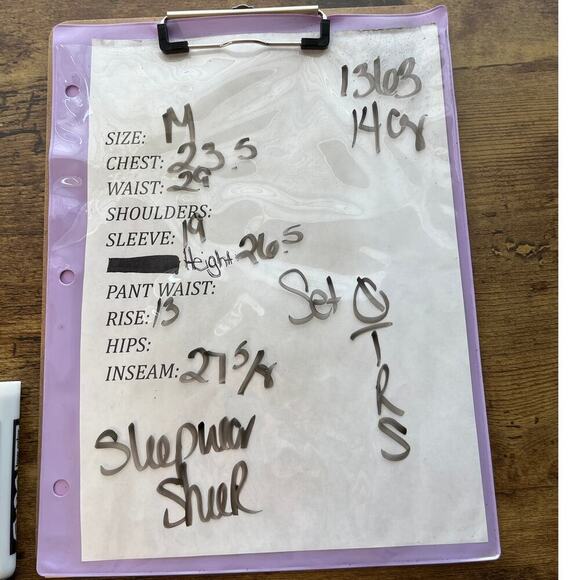 1363
14 Cr
SIZE: M
CHEST: 23.5
WAIST: 29
SHOULDERS:
SLEEVE: 19
Height 26.5
PANT WAIST:
RISE: 13
HIPS:
INSEAM: 27 5/8
Set S
T
R
S
Sleepwear
Sheer